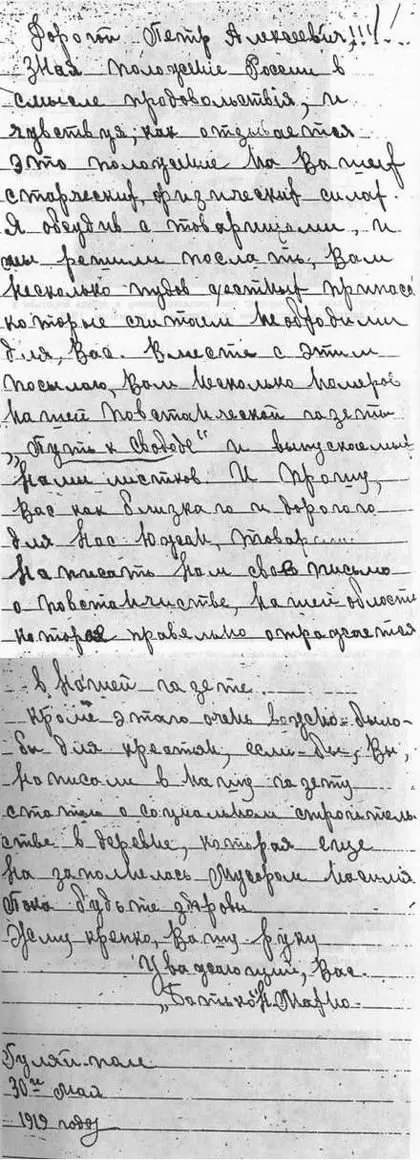 Дорогй Петр Алексеевич!!!
Зная положение России в
смысле продовольствия, и
чувствуя, как отзывается
это положение на Вашеиф
старческиф, физическиф силаф.
Я обсудив с товарищами, и
мы решили послать, Вам
несколько пудов съестныф припасо
которые считаем необфодими
для, Вас. Вместе с этим
посылаю, Вам несколько номеров
нашей повстанческой газеты
„Путь к Свободе" и выпускаемиф
нами листков. И прошу,
Вас как близкаго и дорогого
для нас южан, товар
написать нам свое письмо
о повстанчистве, нашей области
которое правельно отражается
в нашей газете.
Кроме этаго очень важно-было-
бы для крестян, если-бы, Вы,
написали в нашу газету
статю о социалном строитель
стве в деревне, которая еще
на заполнелась мусором насилия
Пока будьте здоровы
Жму крепко, Вашу руку
Уважающий, Вас.
„Батько" Н. Махно.
Гуляй-поле
30го Май
1919 года